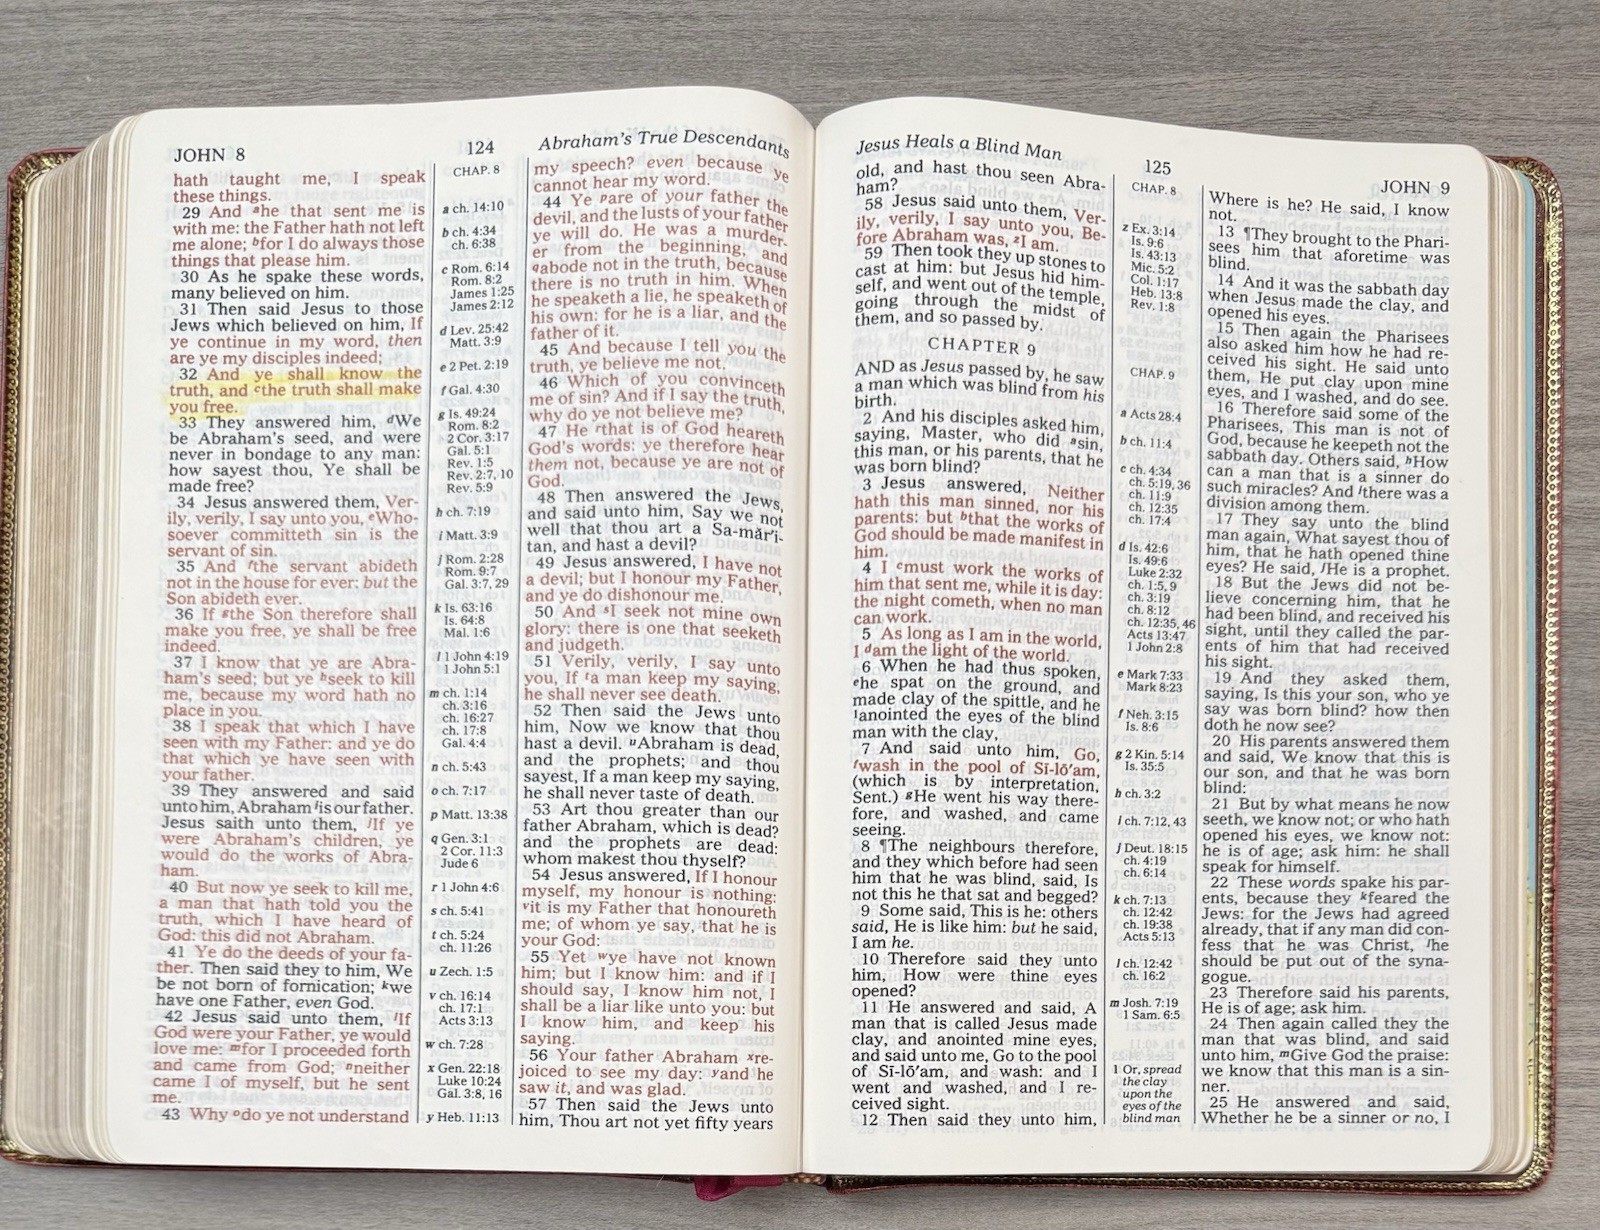 JOHN 8
124
Abraham's True Descendants
hath taught me, I speak
these things.
29 And ᵃhe that sent me is
with me: the Father hath not left
me alone; ᵇfor I do always those
things that please him.
30 As he spake these words,
many believed on him.
31 Then said Jesus to those
Jews which believed on him, If
ye continue in my word, then
are ye my disciples indeed;
32 And ye shall know the
truth, and ᶜthe truth shall make
you free.
33 They answered him, ᵈWe
be Abraham's seed, and were
never in bondage to any man:
how sayest thou, Ye shall be
made free?
34 Jesus answered them, Ver-
ily, verily, I say unto you, ᵉWho-
soever committeth sin is the
servant of sin.
35 And ᶠthe servant abideth
not in the house for ever: but the
Son abideth ever.
36 If ᵍthe Son therefore shall
make you free, ye shall be free
indeed.
37 I know that ye are Abra-
ham's seed; but ye ʰseek to kill
me, because my word hath no
place in you.
38 I speak that which I have
seen with my Father: and ye do
that which ye have seen with
your father.
39 They answered and said
unto him, Abraham ⁱis our father.
Jesus saith unto them, ʲIf ye
were Abraham's children, ye
would do the works of Abra-
ham.
40 But now ye seek to kill me,
a man that hath told you the
truth, which I have heard of
God: this did not Abraham.
41 Ye do the deeds of your fa-
ther. Then said they to him, We
be not born of fornication; ᵏwe
have one Father, even God.
42 Jesus said unto them, ˡIf
God were your Father, ye would
love me: ᵐfor I proceeded forth
and came from God; ⁿneither
came I of myself, but he sent
me.
43 Why ᵒdo ye not understand
CHAP. 8
a ch. 14:10
b ch. 4:34
ch. 6:38
c Rom. 6:14
Rom. 8:2
James 1:25
James 2:12
d Lev. 25:42
Matt. 3:9
e 2 Pet. 2:19
f Gal. 4:30
g Is. 49:24
Rom. 8:2
2 Cor. 3:17
Gal. 5:1
Rev. 1:5
Rev. 2:7, 10
Rev. 5:9
h ch. 7:19
i Matt. 3:9
j Rom. 2:28
Rom. 9:7
Gal. 3:7, 29
k Is. 63:16
Is. 64:8
Mal. 1:6
l 1 John 4:19
1 John 5:1
m ch. 1:14
ch. 3:16
ch. 16:27
ch. 17:8
Gal. 4:4
n ch. 5:43
o ch. 7:17
p Matt. 13:38
q Gen. 3:1
2 Cor. 11:3
Jude 6
r 1 John 4:6
s ch. 5:41
t ch. 5:24
ch. 11:26
u Zech. 1:5
v ch. 16:14
ch. 17:1
Acts 3:13
w ch. 7:28
x Gen. 22:18
Luke 10:24
Gal. 3:8, 16
y Heb. 11:13
my speech? even because ye
cannot hear my word.
44 Ye ᵖare of your father the
devil, and the lusts of your father
ye will do. He was a murder-
er from the beginning, and
qabode not in the truth, because
there is no truth in him. When
he speaketh a lie, he speaketh of
his own: for he is a liar, and the
father of it.
45 And because I tell you the
truth, ye believe me not.
46 Which of you convinceth
me of sin? And if I say the truth,
why do ye not believe me?
47 He ʳthat is of God heareth
God's words: ye therefore hear
them not, because ye are not of
God.
48 Then answered the Jews,
and said unto him, Say we not
well that thou art a Sa-măr′i-
tan, and hast a devil?
49 Jesus answered, I have not
a devil; but I honour my Father,
and ye do dishonour me.
50 And ˢI seek not mine own
glory: there is one that seeketh
and judgeth.
51 Verily, verily, I say unto
you, If ᵗa man keep my saying,
he shall never see death.
52 Then said the Jews unto
him, Now we know that thou
hast a devil. ᵘAbraham is dead,
and the prophets; and thou
sayest, If a man keep my saying,
he shall never taste of death.
53 Art thou greater than our
father Abraham, which is dead?
and the prophets are dead:
whom makest thou thyself?
54 Jesus answered, If I honour
myself, my honour is nothing:
ᵛit is my Father that honoureth
me; of whom ye say, that he is
your God:
55 Yet ʷye have not known
him; but I know him: and if I
should say, I know him not, I
shall be a liar like unto you: but
I know him, and keep his
saying.
56 Your father Abraham ˣre-
joiced to see my day: ʸand he
saw it, and was glad.
57 Then said the Jews unto
him, Thou art not yet fifty years
Jesus Heals a Blind Man
125
JOHN 9
old, and hast thou seen Abra-
ham?
58 Jesus said unto them, Ver-
ily, verily, I say unto you, Be-
fore Abraham was, ᶻI am.
59 Then took they up stones to
cast at him: but Jesus hid him-
self, and went out of the temple,
going through the midst of
them, and so passed by.
CHAPTER 9
AND as Jesus passed by, he saw
a man which was blind from his
birth.
2 And his disciples asked him,
saying, Master, who did ᵃsin,
this man, or his parents, that he
was born blind?
3 Jesus answered, Neither
hath this man sinned, nor his
parents: but ᵇthat the works of
God should be made manifest in
him.
4 I ᶜmust work the works of
him that sent me, while it is day:
the night cometh, when no man
can work.
5 As long as I am in the world,
I ᵈam the light of the world.
6 When he had thus spoken,
ᵉhe spat on the ground, and
made clay of the spittle, and he
¹anointed the eyes of the blind
man with the clay,
7 And said unto him, Go,
ᶠwash in the pool of Sī-lō′am,
(which is by interpretation,
Sent.) ᵍHe went his way there-
fore, and washed, and came
seeing.
8 ¶The neighbours therefore,
and they which before had seen
him that he was blind, said, Is
not this he that sat and begged?
9 Some said, This is he: others
said, He is like him: but he said,
I am he.
10 Therefore said they unto
him, How were thine eyes
opened?
11 He answered and said, A
man that is called Jesus made
clay, and anointed mine eyes,
and said unto me, Go to the pool
of Sī-lō′am, and wash: and I
went and washed, and I re-
ceived sight.
12 Then said they unto him,
CHAP. 8
z Ex. 3:14
Is. 9:6
Is. 43:13
Mic. 5:2
Col. 1:17
Heb. 13:8
Rev. 1:8
CHAP. 9
a Acts 28:4
b ch. 11:4
c ch. 4:34
ch. 5:19, 36
ch. 11:9
ch. 12:35
ch. 17:4
d Is. 42:6
Is. 49:6
Luke 2:32
ch. 1:5, 9
ch. 3:19
ch. 8:12
ch. 12:35, 46
Acts 13:47
1 John 2:8
e Mark 7:33
Mark 8:23
f Neh. 3:15
Is. 8:6
g 2 Kin. 5:14
Is. 35:5
h ch. 3:2
i ch. 7:12, 43
j Deut. 18:15
ch. 4:19
ch. 6:14
k ch. 7:13
ch. 12:42
ch. 19:38
Acts 5:13
l ch. 12:42
ch. 16:2
m Josh. 7:19
1 Sam. 6:5
1 Or, spread
the clay
upon the
eyes of the
blind man
Where is he? He said, I know
not.
13 ¶They brought to the Phari-
sees him that aforetime was
blind.
14 And it was the sabbath day
when Jesus made the clay, and
opened his eyes.
15 Then again the Pharisees
also asked him how he had re-
ceived his sight. He said unto
them, He put clay upon mine
eyes, and I washed, and do see.
16 Therefore said some of the
Pharisees, This man is not of
God, because he keepeth not the
sabbath day. Others said, ʰHow
can a man that is a sinner do
such miracles? And ⁱthere was a
division among them.
17 They say unto the blind
man again, What sayest thou of
him, that he hath opened thine
eyes? He said, ʲHe is a prophet.
18 But the Jews did not be-
lieve concerning him, that he
had been blind, and received his
sight, until they called the par-
ents of him that had received
his sight.
19 And they asked them,
saying, Is this your son, who ye
say was born blind? how then
doth he now see?
20 His parents answered them
and said, We know that this is
our son, and that he was born
blind:
21 But by what means he now
seeth, we know not; or who hath
opened his eyes, we know not:
he is of age; ask him: he shall
speak for himself.
22 These words spake his par-
ents, because they ᵏfeared the
Jews: for the Jews had agreed
already, that if any man did con-
fess that he was Christ, ˡhe
should be put out of the syna-
gogue.
23 Therefore said his parents,
He is of age; ask him.
24 Then again called they the
man that was blind, and said
unto him, ᵐGive God the praise:
we know that this man is a sin-
ner.
25 He answered and said,
Whether he be a sinner or no, I